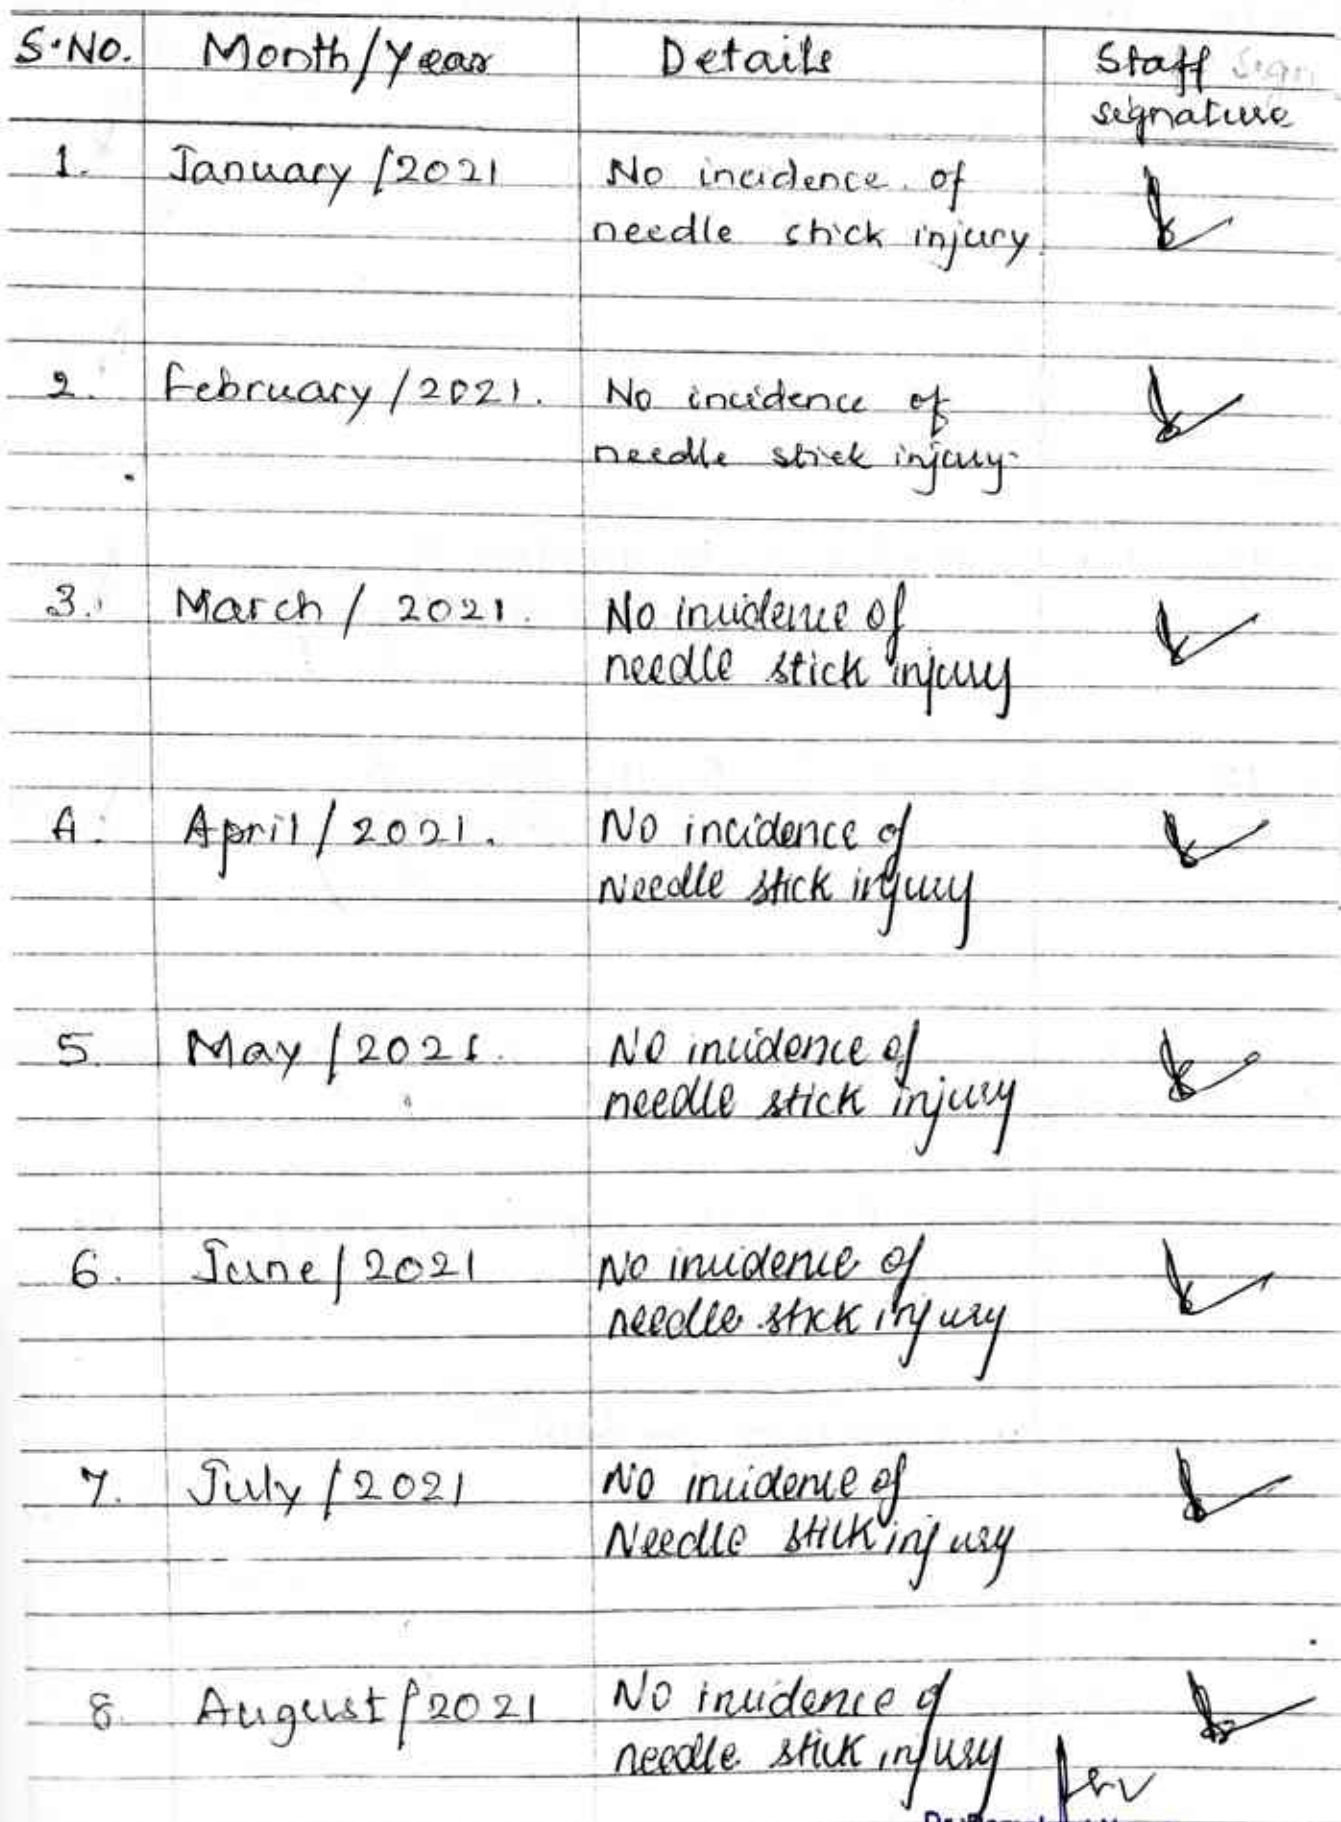 S.No. Month/Year Details Staff
signature
1. January/2021 No incidence of
needle stick injury.
2. February/2021. No incidence of
needle stick injury.
3. March/2021. No incidence of
needle stick injury
4. April/2021. No incidence of
Needle stick injury
5. May/2021. No incidence of
needle stick injury
6. June/2021 No incidence of
needle stick injury
7. July/2021 No incidence of
Needle stick injury
8. August/2021 No incidence of
needle stick injury